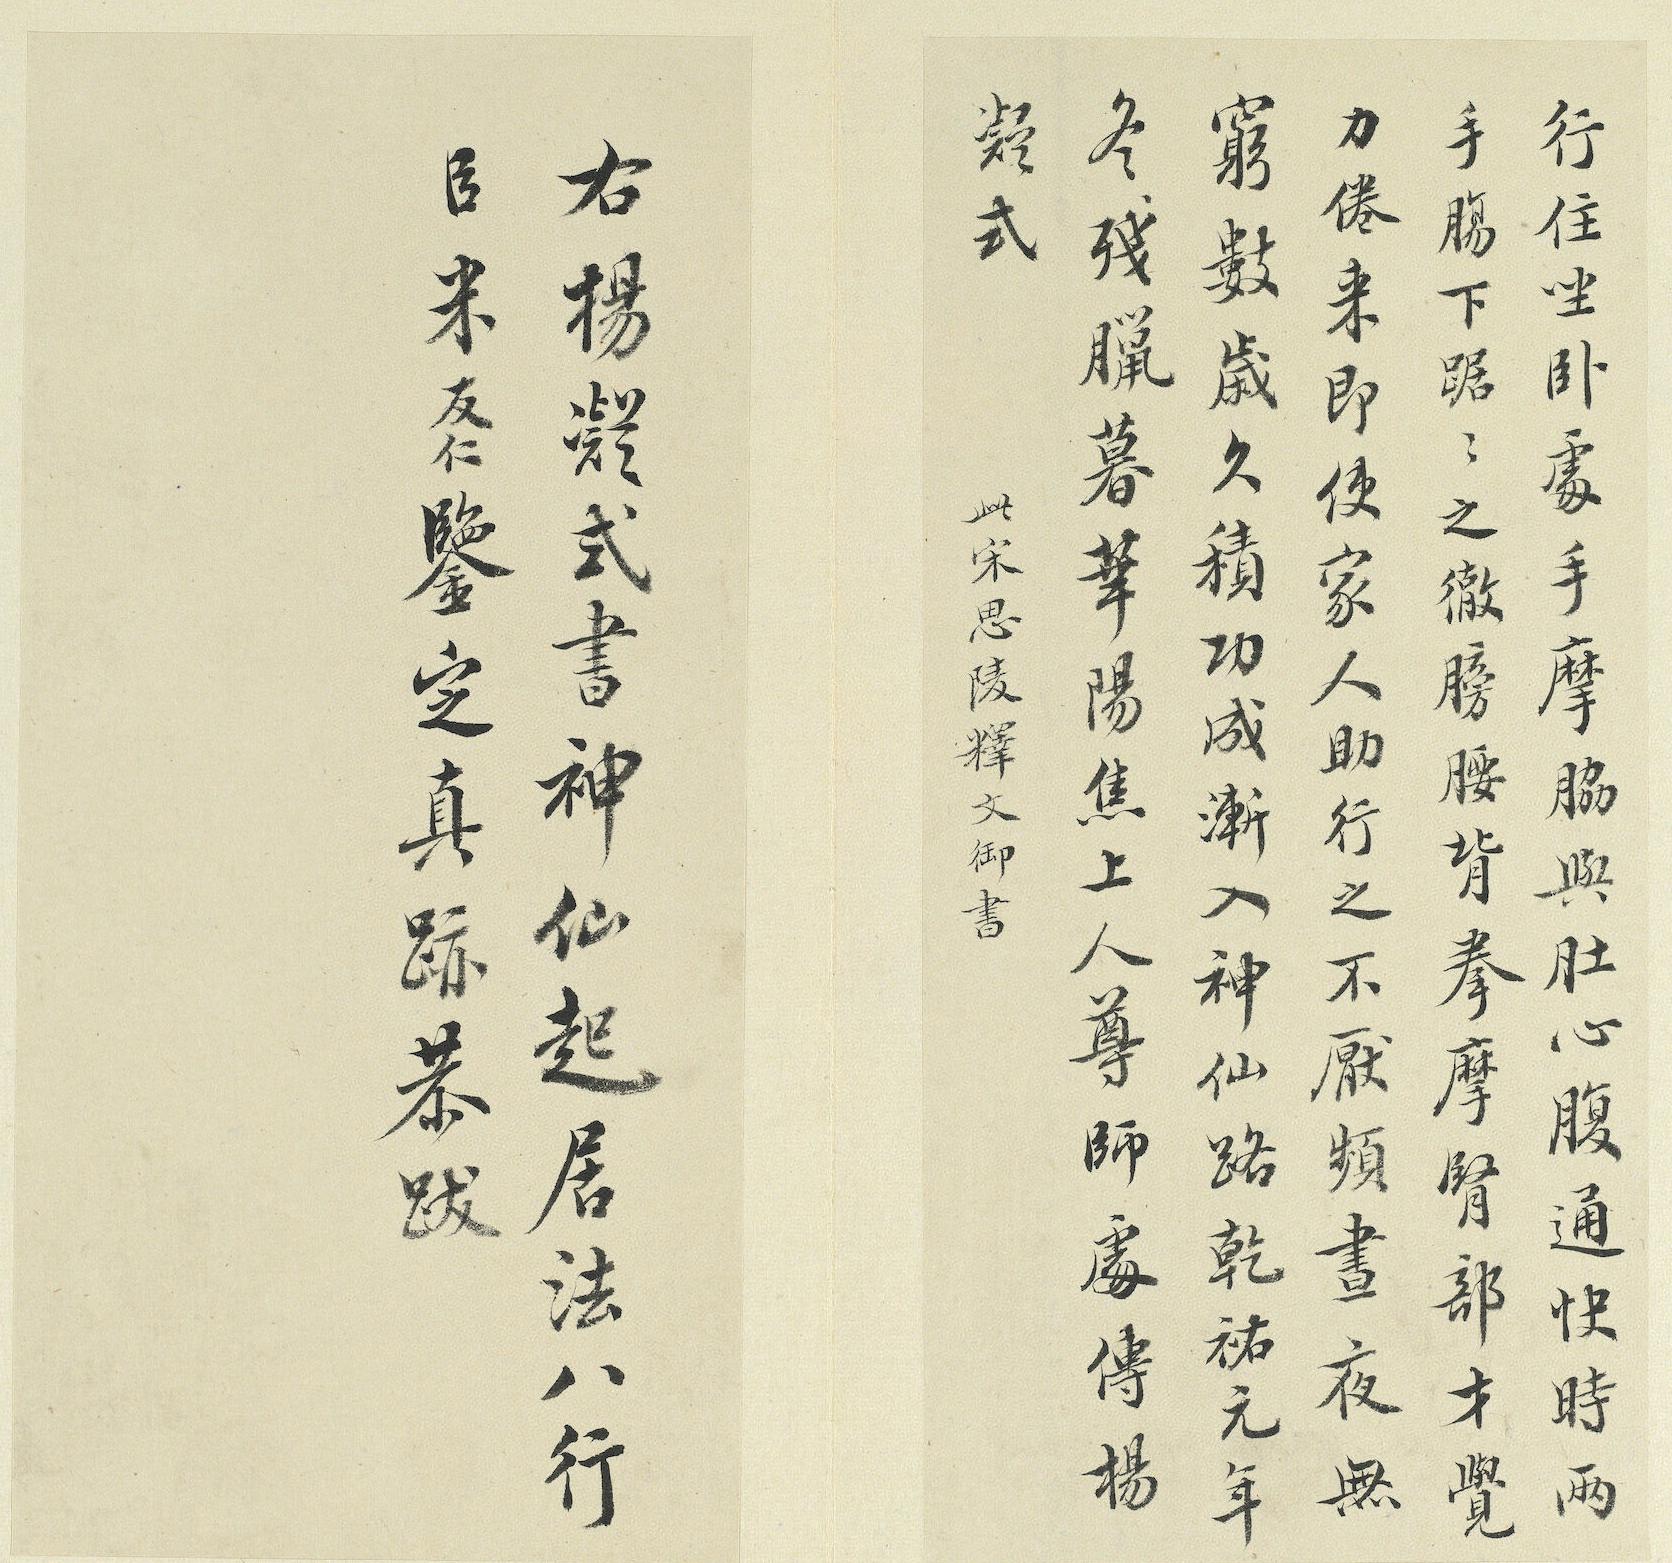 行住坐卧處手摩脇與肚心腹通快時兩
手腸下踞〻之徹膀腰背拳摩腎部才覺
力倦来即使家人助行之不厭頻晝夜無
窮數歲久積功成漸入神仙路乾祐元年
冬殘臘暮華陽焦上人尊師處傳楊
凝式
此宋思陵釋文御書
右楊凝式書神仙起居法八行
臣米友仁鑒定真跡恭跋